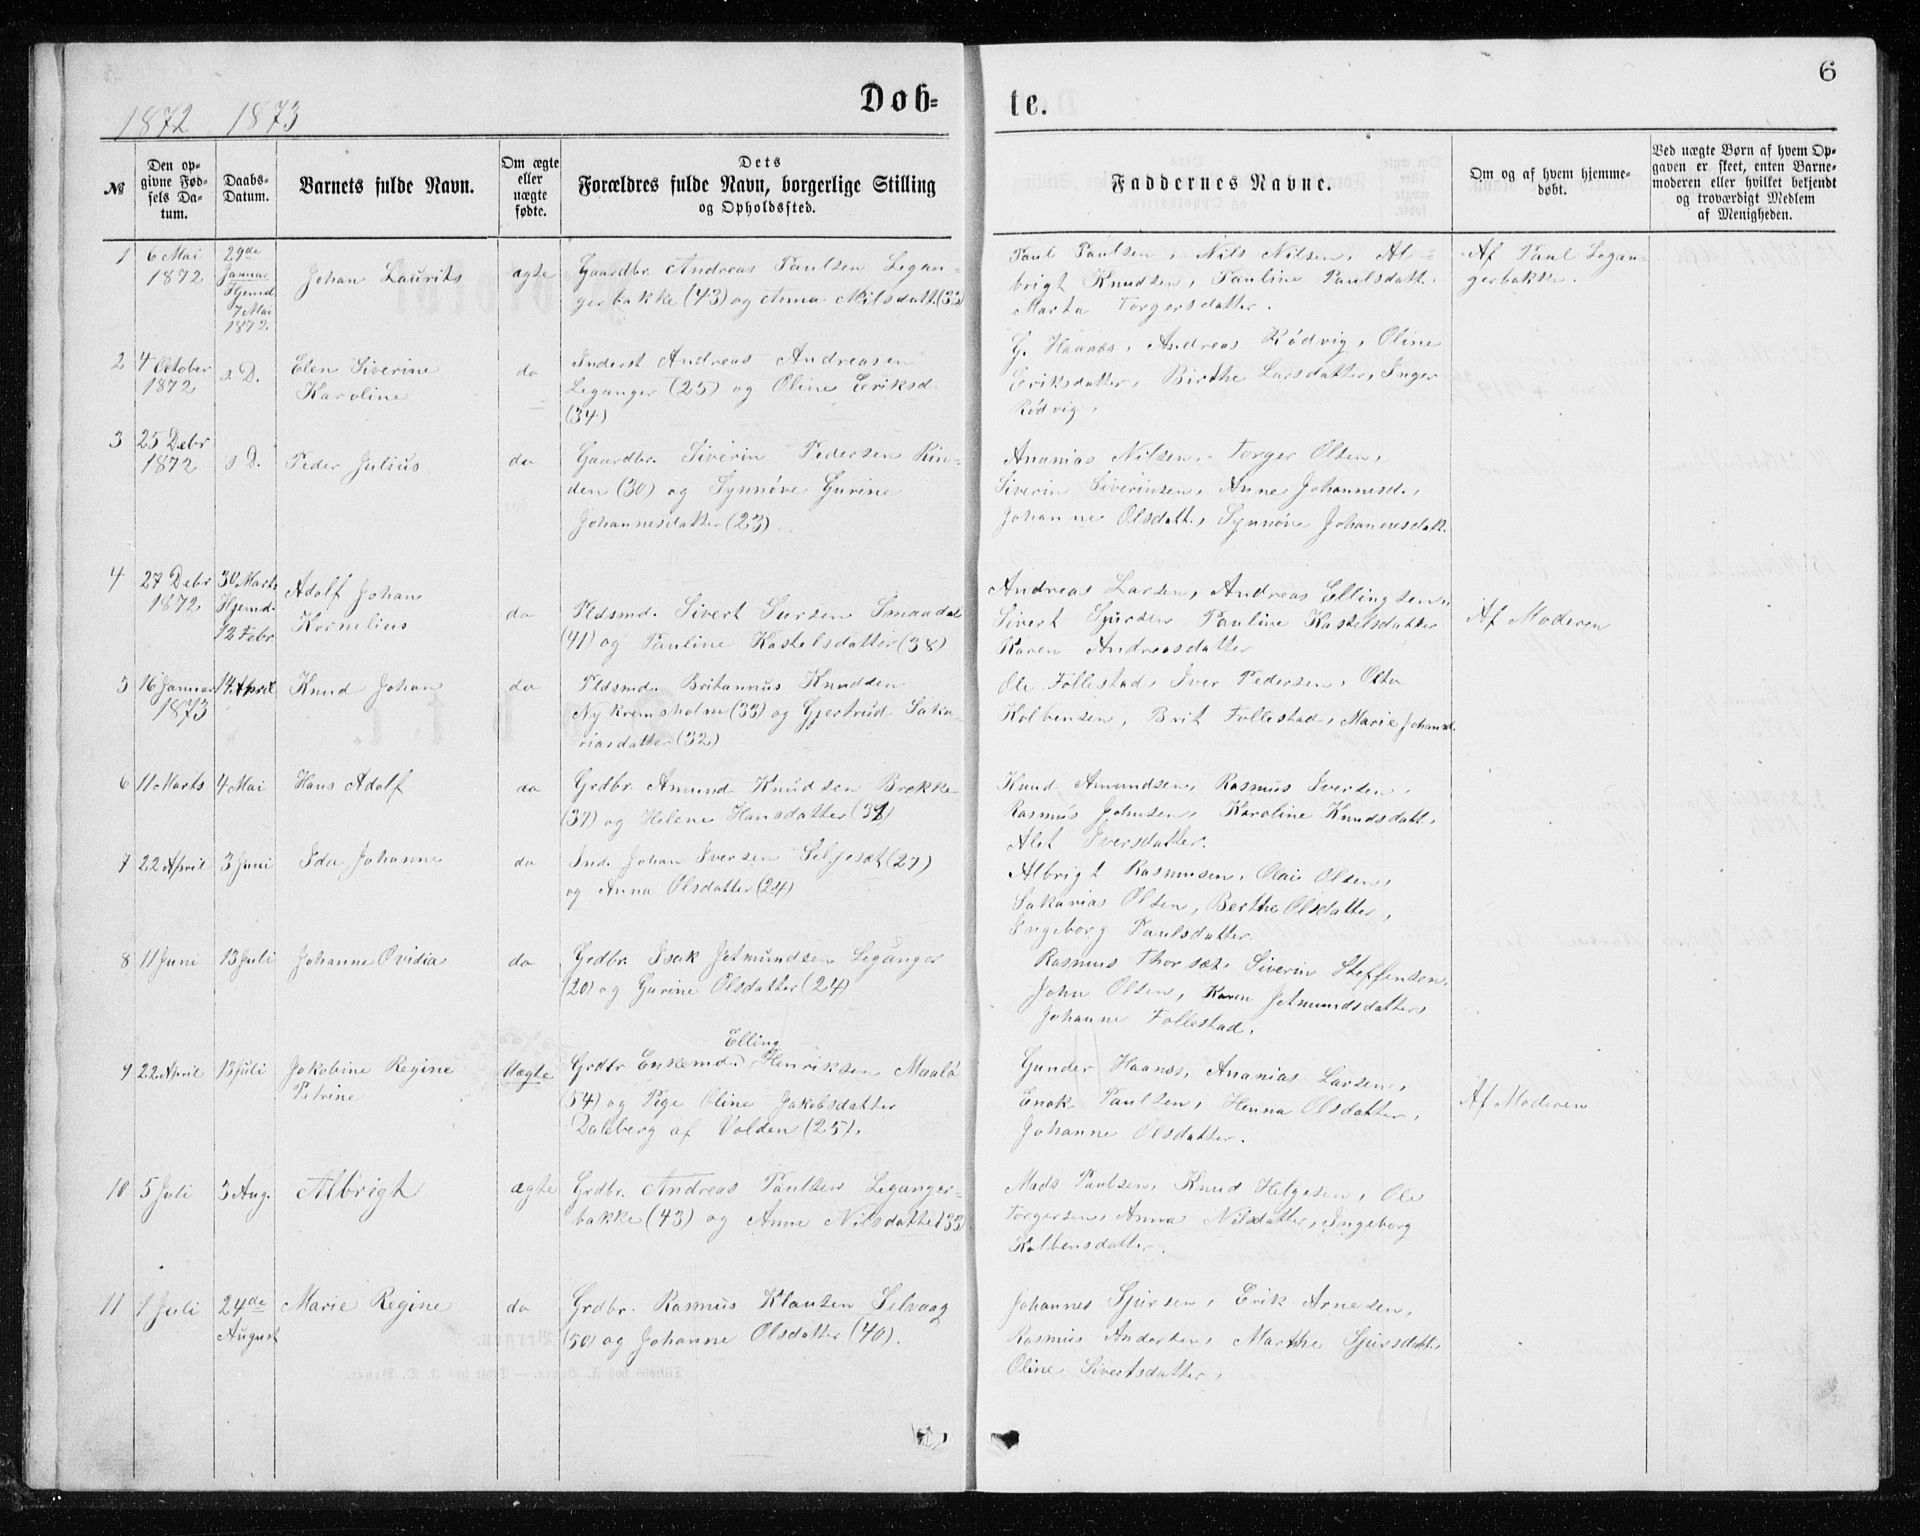 6
Dob-
te.
1872 1873
№
Den op-
givne Fød-
sels Da-
tum.
Daabs-
Datum.
Barnets fulde Navn.
Om ægte
eller
uægte
fødte.
Dets
Forældres fulde Navn, borgerlige Stilling
og Opholdssted.
Faddernes Navne.
Om og af hvem hjemme-
døbt.
Ved uægte Børn af hvem Op-
gaven er skeet, enten Barne-
moderen eller hvilket bekjendt
og troværdigt Medlem
af Menigheden.
1
6 Mai
1872
29de
Januar
Hjemd.
7 Mai
1872
Johan Laurits
ægte
Gaardbr. Andreas Paulsen Legan-
gerbakke (43) og Anna Nilsdatt (33)
Paul Paulsen, Nils Nilsen, Al-
brigt Knudsen, Pauline Paulsdatt.
Marta Torgersdatter.
Af Paul Legan-
gerbakke.
2
4 October
1872
s D.
Elen Siverine
Karoline
do
Inderst Andreas Andreasen
Leganger (25) og Oline Eriksd.
(34)
G. Haanes, Andreas Rødvig, Oline
Eriksdatter, Birthe Larsdatter, Inger
Rødvig,
3
25 Debr
1872
s D.
Peder Julius
do
Gaardbr. Siverin Pedersen Rin-
den (30) og Synnøve Gurine
Johannesdatter (23)
Ananias Nilsen, Torger Olsen,
Siverin Siverinsen, Anne Johannesd.,
Johanne Olsdatt., Synnøve Johannesdatt.
4
27 Debr
1872
30 Marts
Hjemd.
12 Febr
Adolf Johan
Kornelius
do
Pldsmd. Sivert Sjursen Smaadal
(41) og Pauline Kastelsdatter (38)
Andreas Larsen, Andreas Ellingsen,
Sivert Sjursen Pauline Kastelsdatter
Karen Andreasdatter
Af Moderen
5
16 Januar
1873
14 April
Knud Johan
do
Pldsmd. Britannus Knudsen
Nykremsholm (33) og Gjertrud Saka-
riasdatter (32)
Ole Follestad, Iver Pedersen, Olta
Kolbensen, Brit Follestad, Marie Johansd.
6
11 Marts
4 Mai
Hans Adolf
do
Grdbr. Amund Knudsen Brekke
(37) og Helene Hansdatter (31)
Knud Amundsen, Rasmus Iversen,
Rasmus Johnsen, Karoline Knudsdatt.,
Alet Iversdatter.
7
22 April
3 Juni
Ida Johanne
do
Ind. Johan Iversen Seljesæt (27)
og Anna Olsdatter (24)
Albrigt Rasmusen, Olai Olsen,
Sakarias Olsen, Berthe Olsdatter,
Ingeborg Paulsdatter.
8
11 Juni
13 Juli
Johanne Ovidia
do
Grdbr. Isak Jetmundsen Leganger
(20) og Gurine Olsdatter (24)
Rasmus Thorset, Siverin Steffensen,
John Olsen, Karen Jetmundsdatter,
Johanne Follestad.
9
22 April
13 Juli
Jakobine Regine
Petrine
Uægte
Elling
Grdbr Enkemd. Henriksen Maalø
(54) og Pige Oline Jakobsdatter
Dalsberg af Volden (25).
Gunder Haanes, Ananias Larsen,
Enok Paulsen, Henna Olsdatter,
Johanne Olsdatter.
Af Moderen
10
5 Juli
3 Aug.
Albrigt
ægte
Grdbr. Andreas Paulsen Leganger-
bakke (43) og Anna Nilsdatter (33)
Mads Paulsen, Knud Helgesen, Ole
Torgersen, Anna Nilsdatter, Ingeborg
Kolbensdatter.
11
1 Juli
24de
August
Marie Regine
do
Grdbr. Rasmus Klausen Selvaag
(50) og Johanne Olsdatter (40).
Johannes Sjursen, Erik Arnesen,
Rasmus Andersen, Marthe Sjursdatt.,
Oline Sivertsdatter,